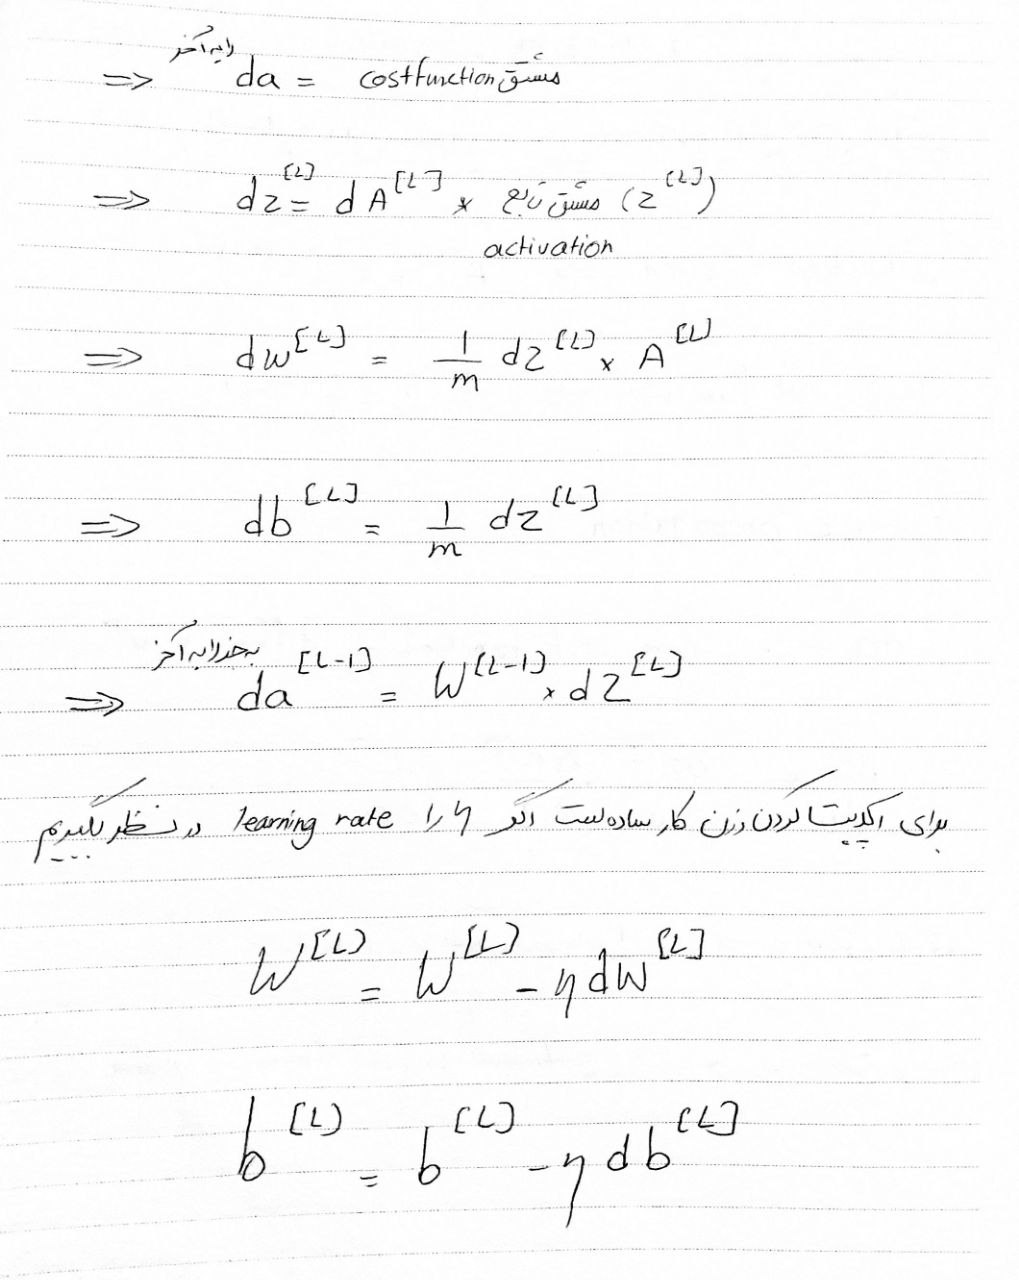 لایه آخر
⇒ da = costfunction مشتق
⇒ dz^[L] = dA^[L] × مشتق تابع (z^[L])
activation
⇒ dw^[L] = 1/m dz^[L] × A^[L]
⇒ db^[L] = 1/m dz^[L]
بجز لایه آخر
⇒ da^[L-1] = W^[L-1] × dz^[L]
برای آپدیت کردن وزن کار ساده است اگر η را learning rate در نظر بگیریم
W^[L] = W^[L] - η dw^[L]
b^[L] = b^[L] - η db^[L]